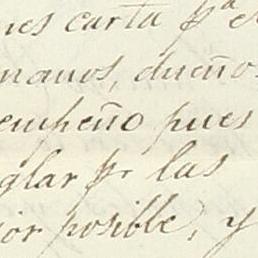 nes carta pª e
manos, dueños
empeño pues
glar pr las
jor posible, y